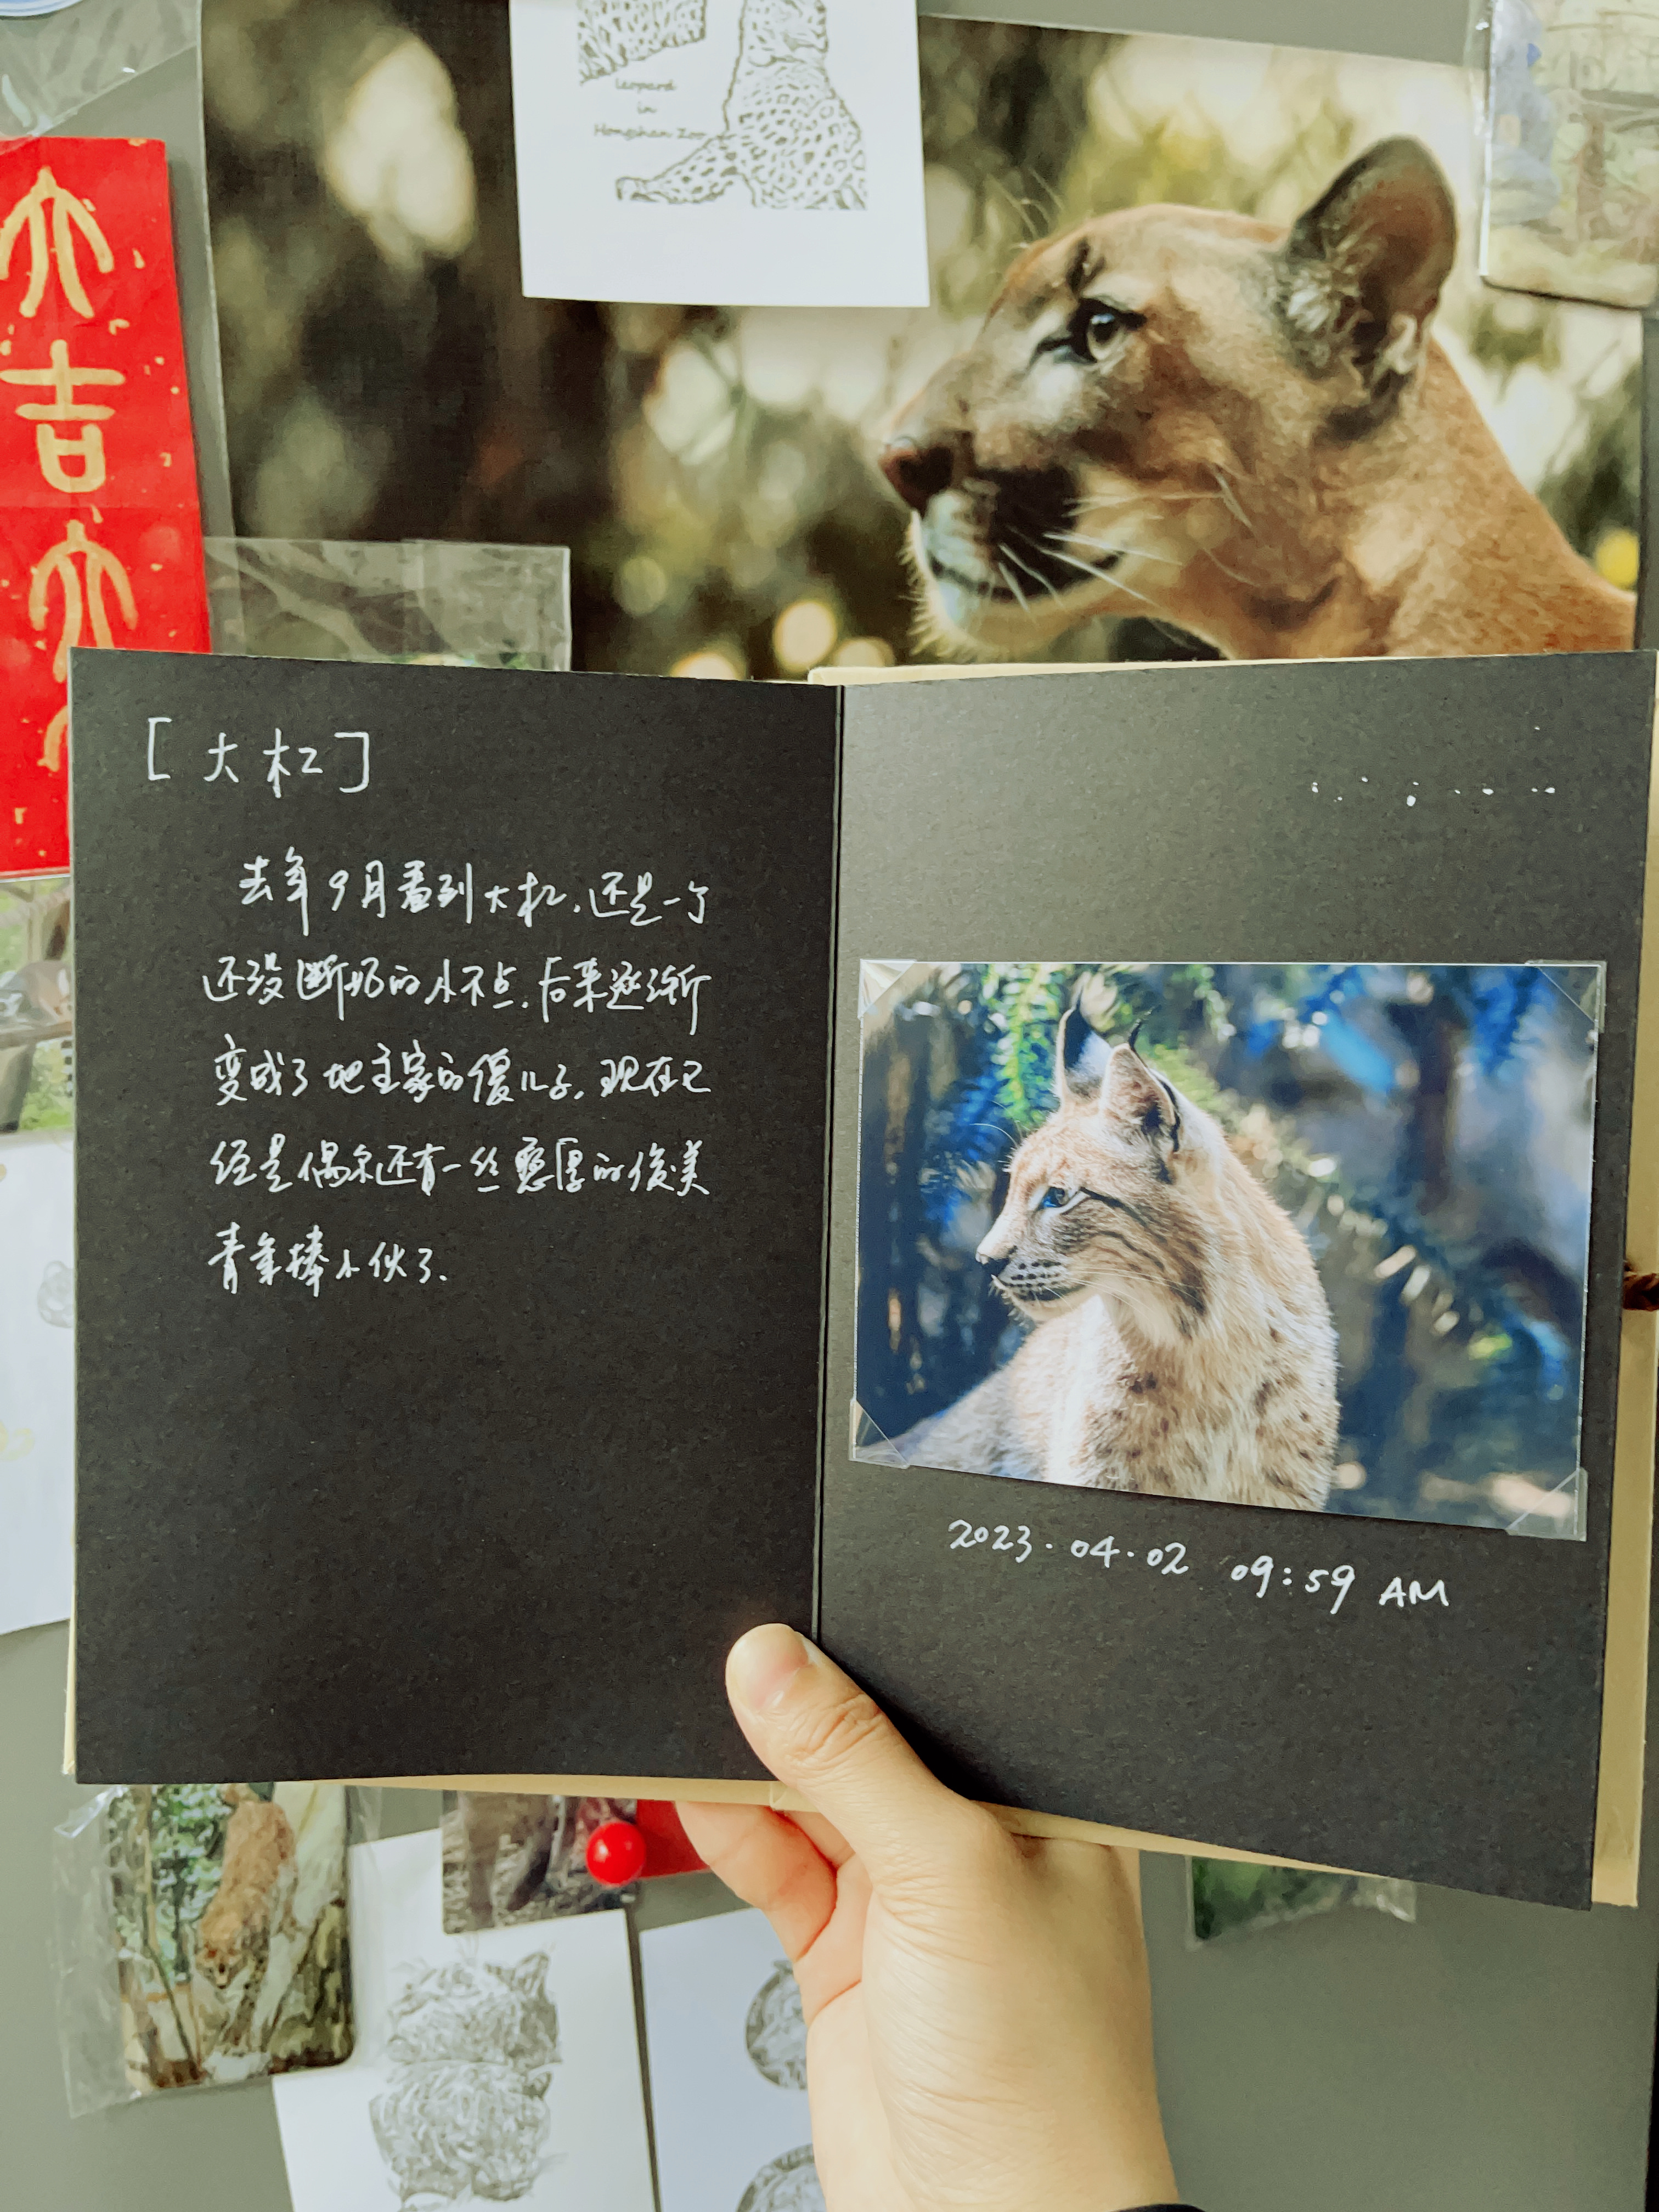 leopard
in
Hongshan Zoo
大
吉
大
[大杠]
去年9月看到大杠.还是一个
还没断奶的小不点.后来逐渐
变成了地主家的傻儿子.现在已
经是偶尔还有一丝憨厚的俊美
青年棒小伙了.
2023.04.02 09:59 AM